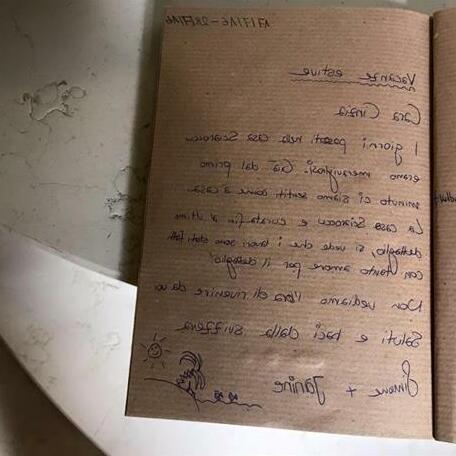 17/7/16 - 28/7/16
Vacanze estive
Cara Cinzia
I giorni passati nella casa Scirocco
erano meravigliosi. Già dal primo
minuto ci siamo sentiti come a casa.
La casa Scirocco è curata fin a ultimo
dettaglio, si vede che i lavori sono stati fatti
con tanto amore per il dettaglio.
Non vediamo l'ora di rivenire da voi
Saluti e baci dalla svizzera
Simone + Janine